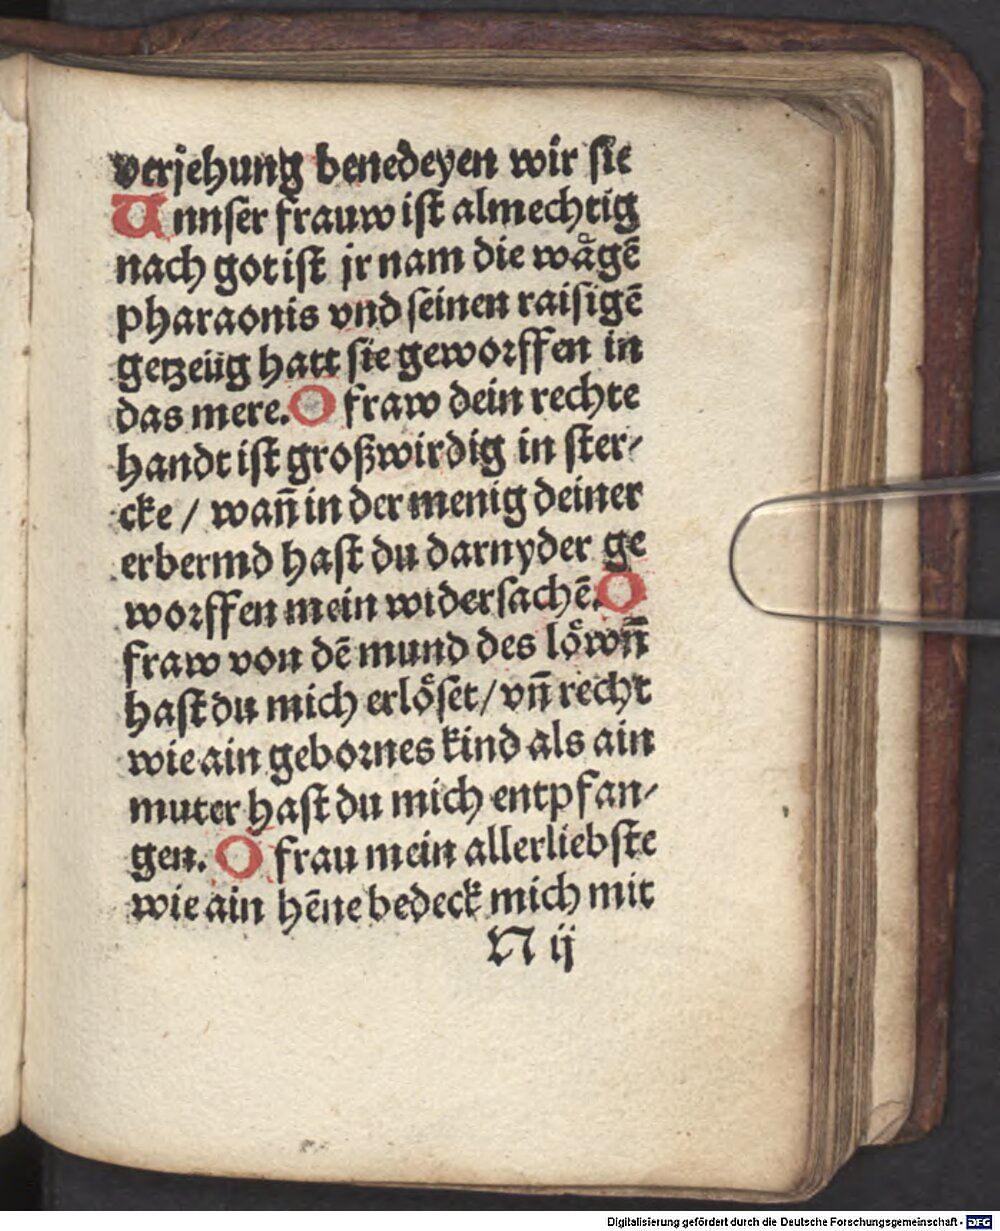 verjehung benedeyen wir sie
Unnser frauw ist almechtig
nach got ist jr nam die wågē
pharaonis vnd seinen raisigē
getzeüg hatt sie geworffen in
das mere. O fraw dein rechte
handt ist großwirdig in ster-
cke / wañ in der menig deiner
erbermd hast du darnyder ge
worffen mein widersachē. O
fraw von dē mund des löwñ
hast du mich erlöset / vñ recht
wie ain gebornes kind als ain
muter hast du mich entpfan-
gen. O frau mein allerliebste
wie ain hēne bedeck mich mit
N ij
Digitalisierung gefördert durch die Deutsche Forschungsgemeinschaft - DFG